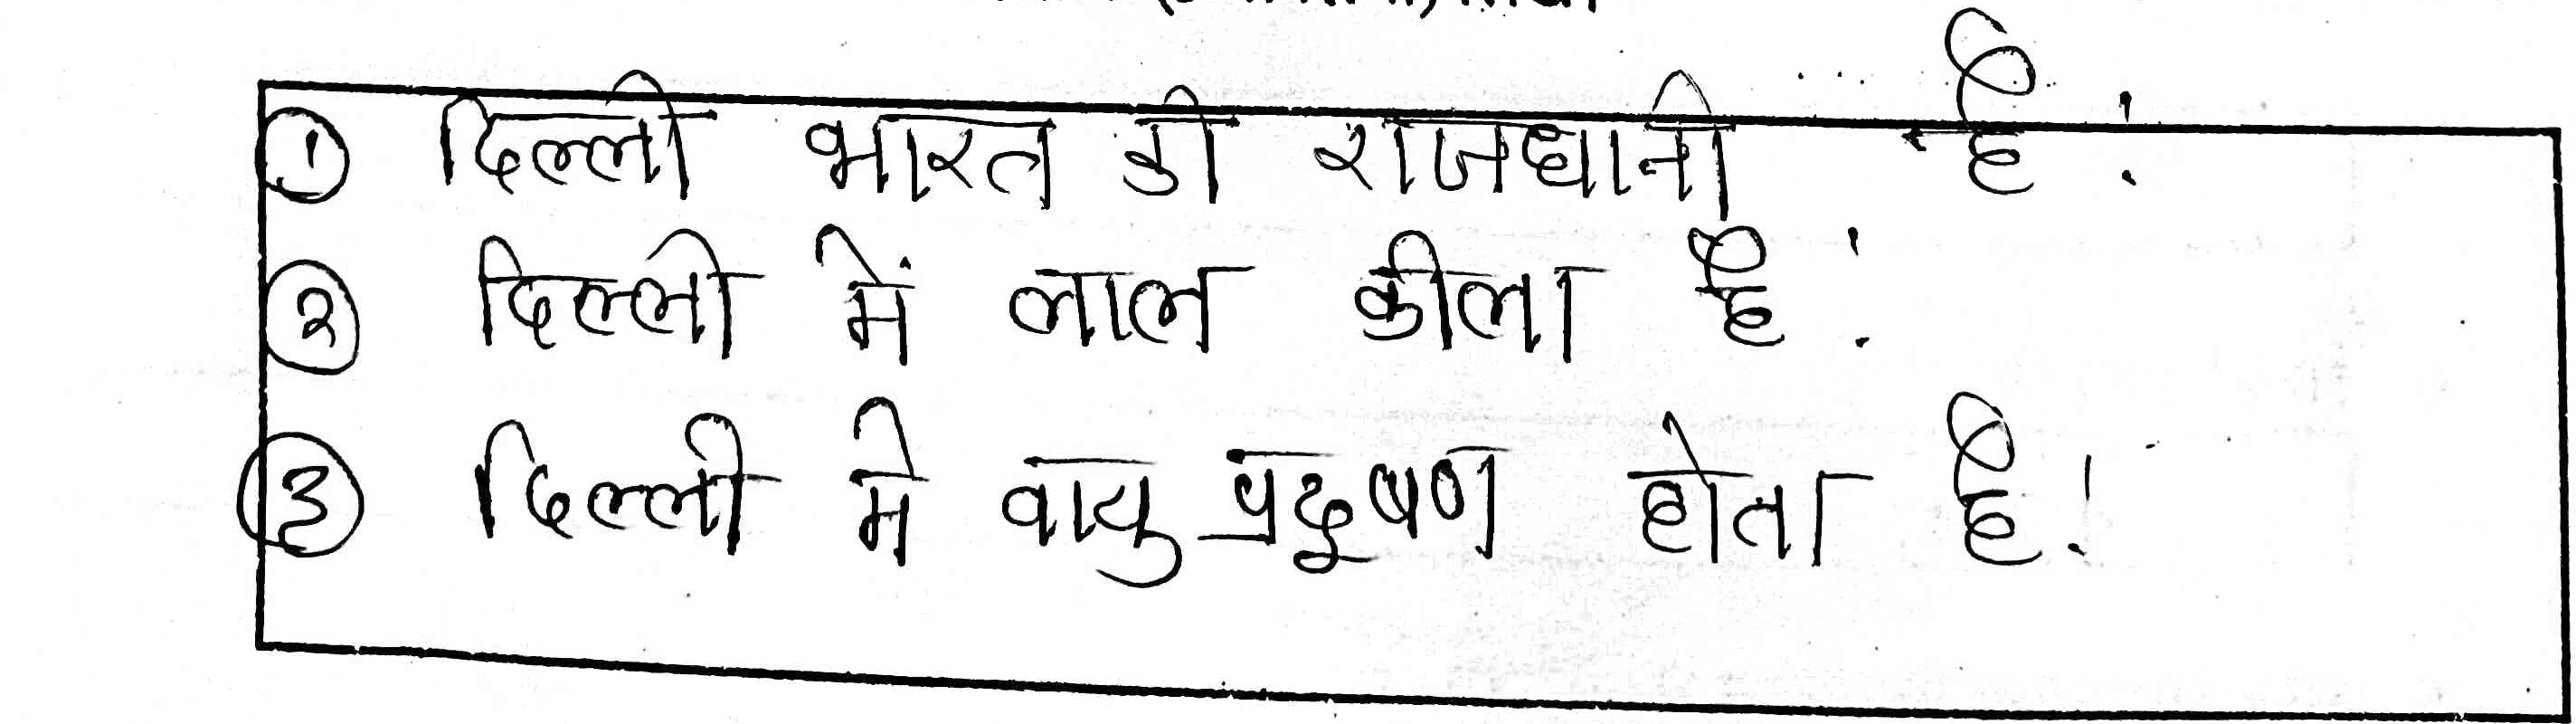 ① दिल्ली भारत की राजधानी है !
② दिल्ली में लाल कीला है !
③ दिल्ली मे वायु प्रदूषण होता है !